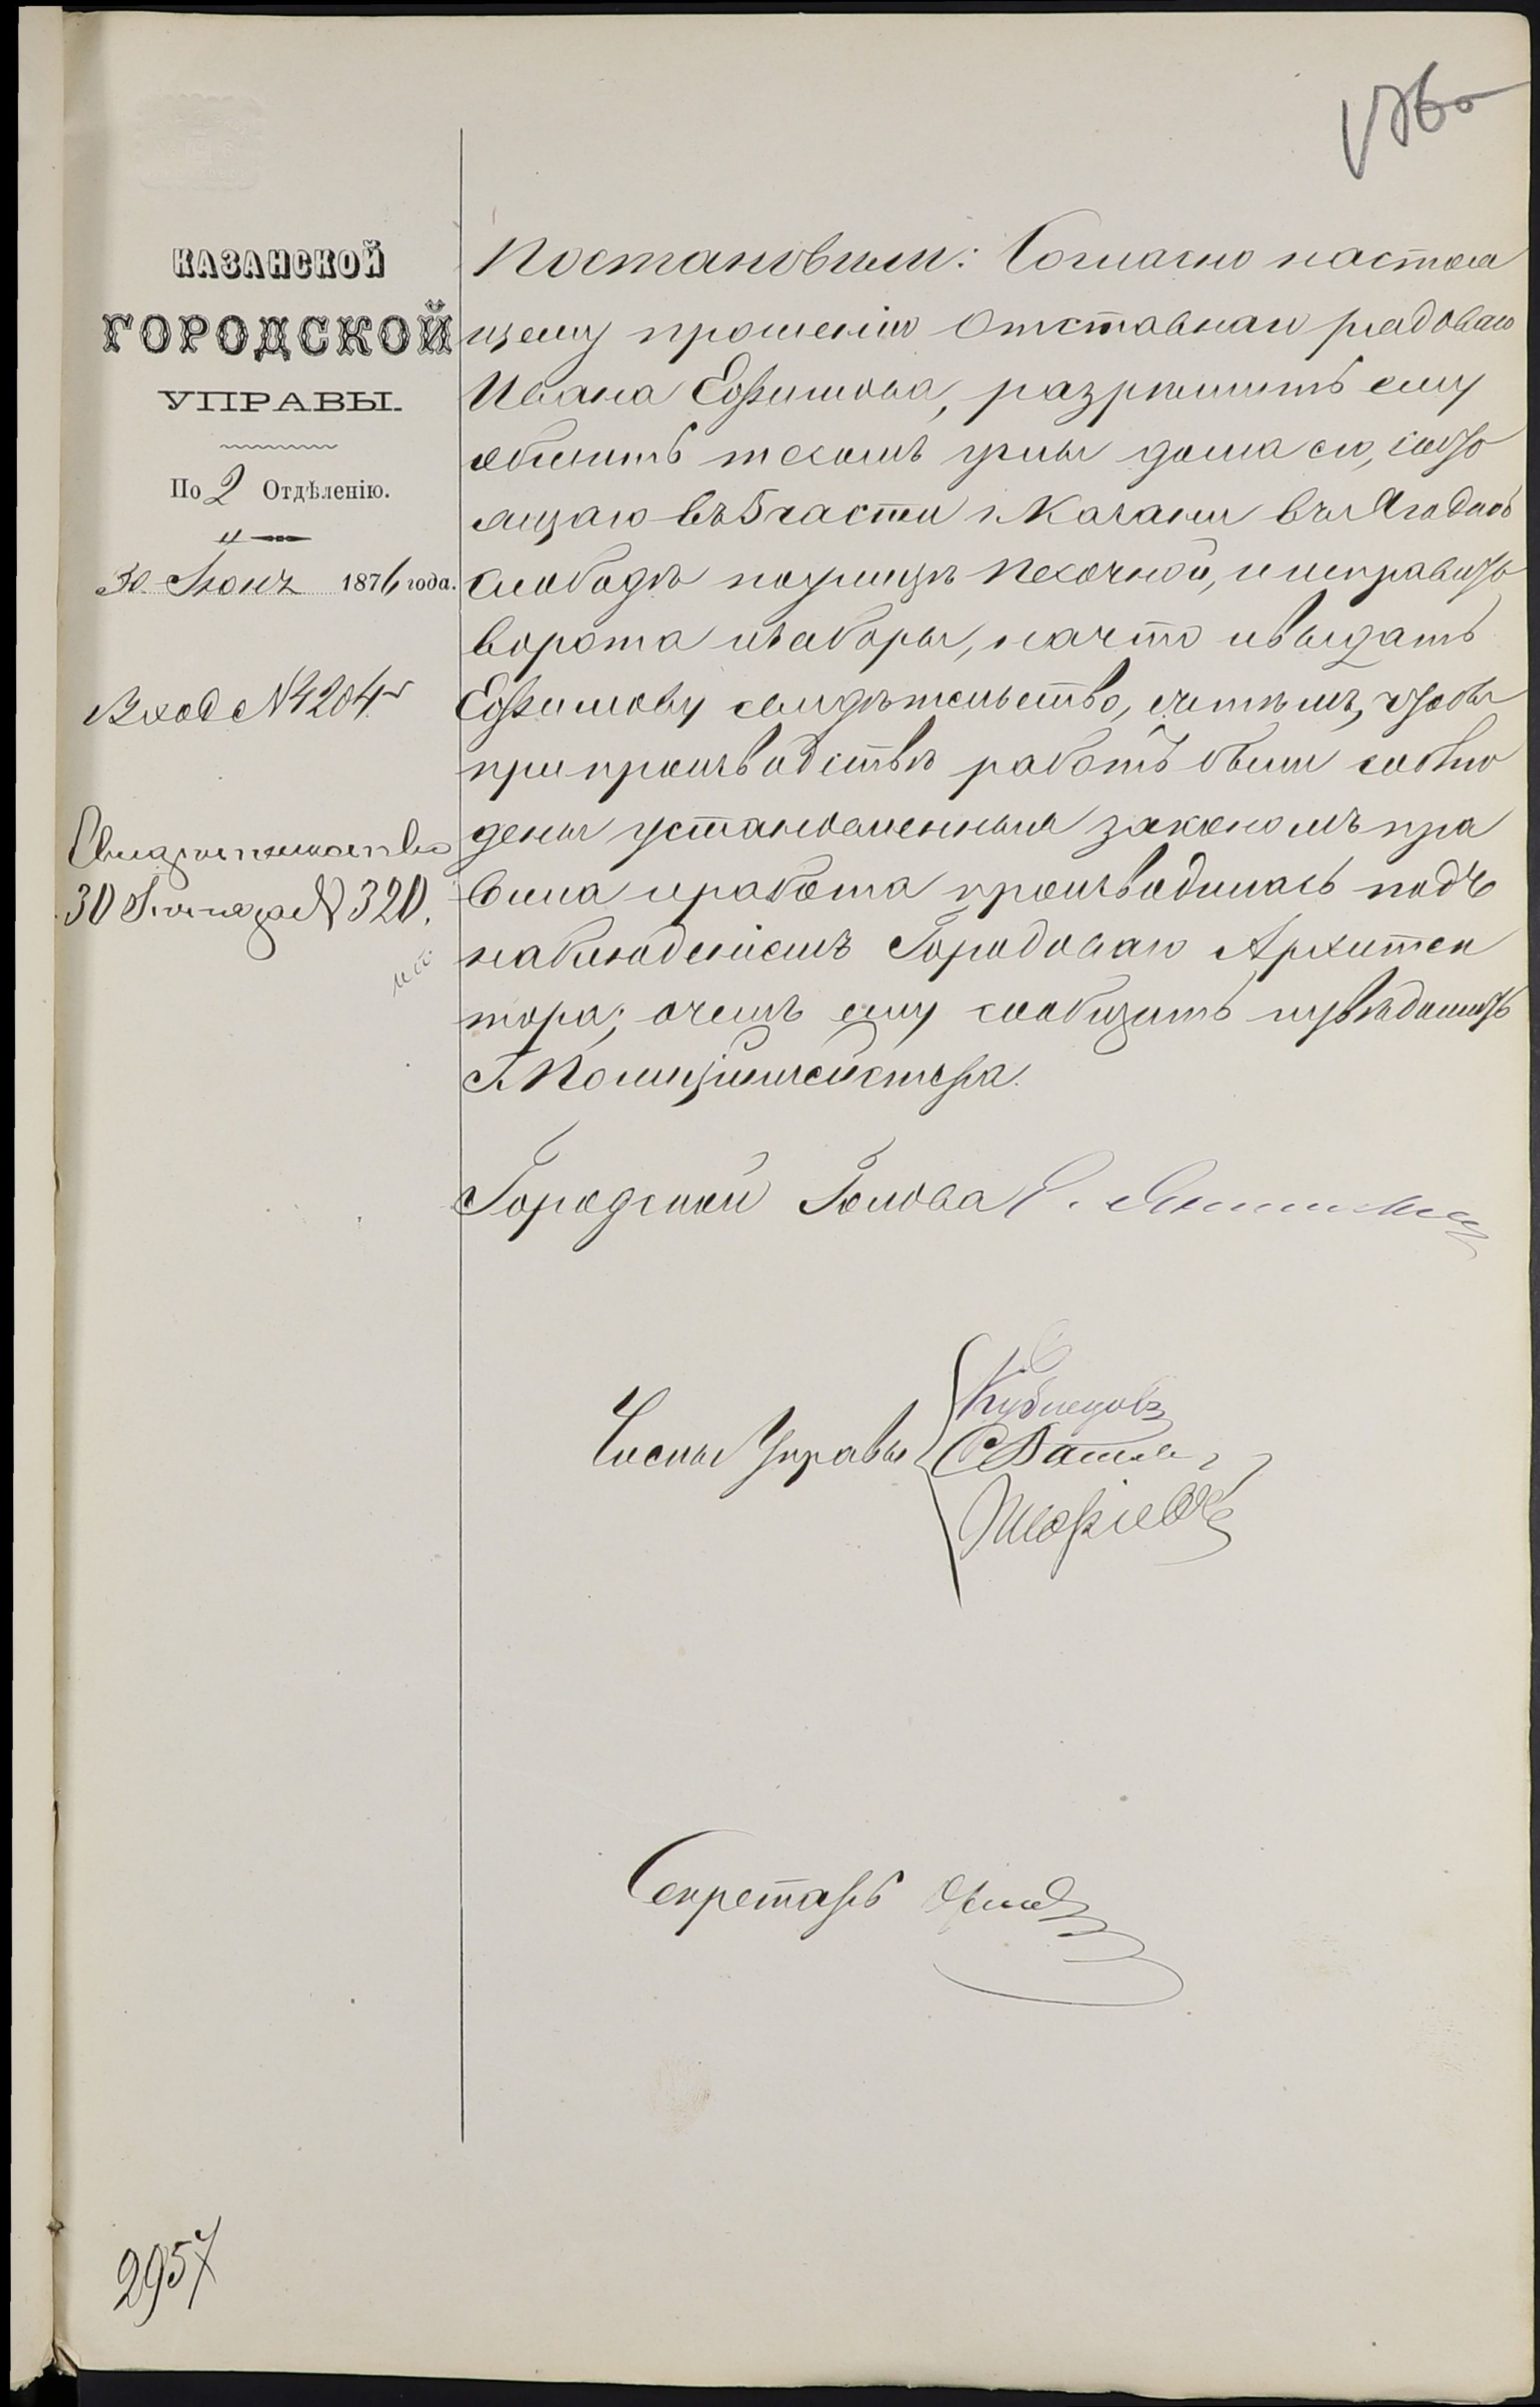 КАЗАНСКОЙ
ГОРОДСКОЙ
УПРАВЫ.
По 2 Отдѣленію.
30 Іюня 1876 года.
Вход № 4204
Свидѣтельство
30 Іюня за № 320.
Постановили: Согласно настоя
щему прошенію Отставнаго рядоваго
Ивана Ефимова, разрѣшить ему
обшить тесомъ углы дома его, состо
ящаго въ 5 части г. Казани въ Ягодной
слободѣ по улицѣ Песочной, и исправить
ворота и заборы, на что и выдать
Ефимову свидѣтельство, съ тѣмъ, чтобы
при производствѣ работъ были соблю
дены установленныя закономъ пра
вила и работа производилась подъ
наблюденіемъ Городоваго Архитек
тора; о чемъ ему сообщить и увѣдомить
Г. Полиціймейстера.
Городской Голова
Члены Управы
Кузнецовъ
Секретарь
2957